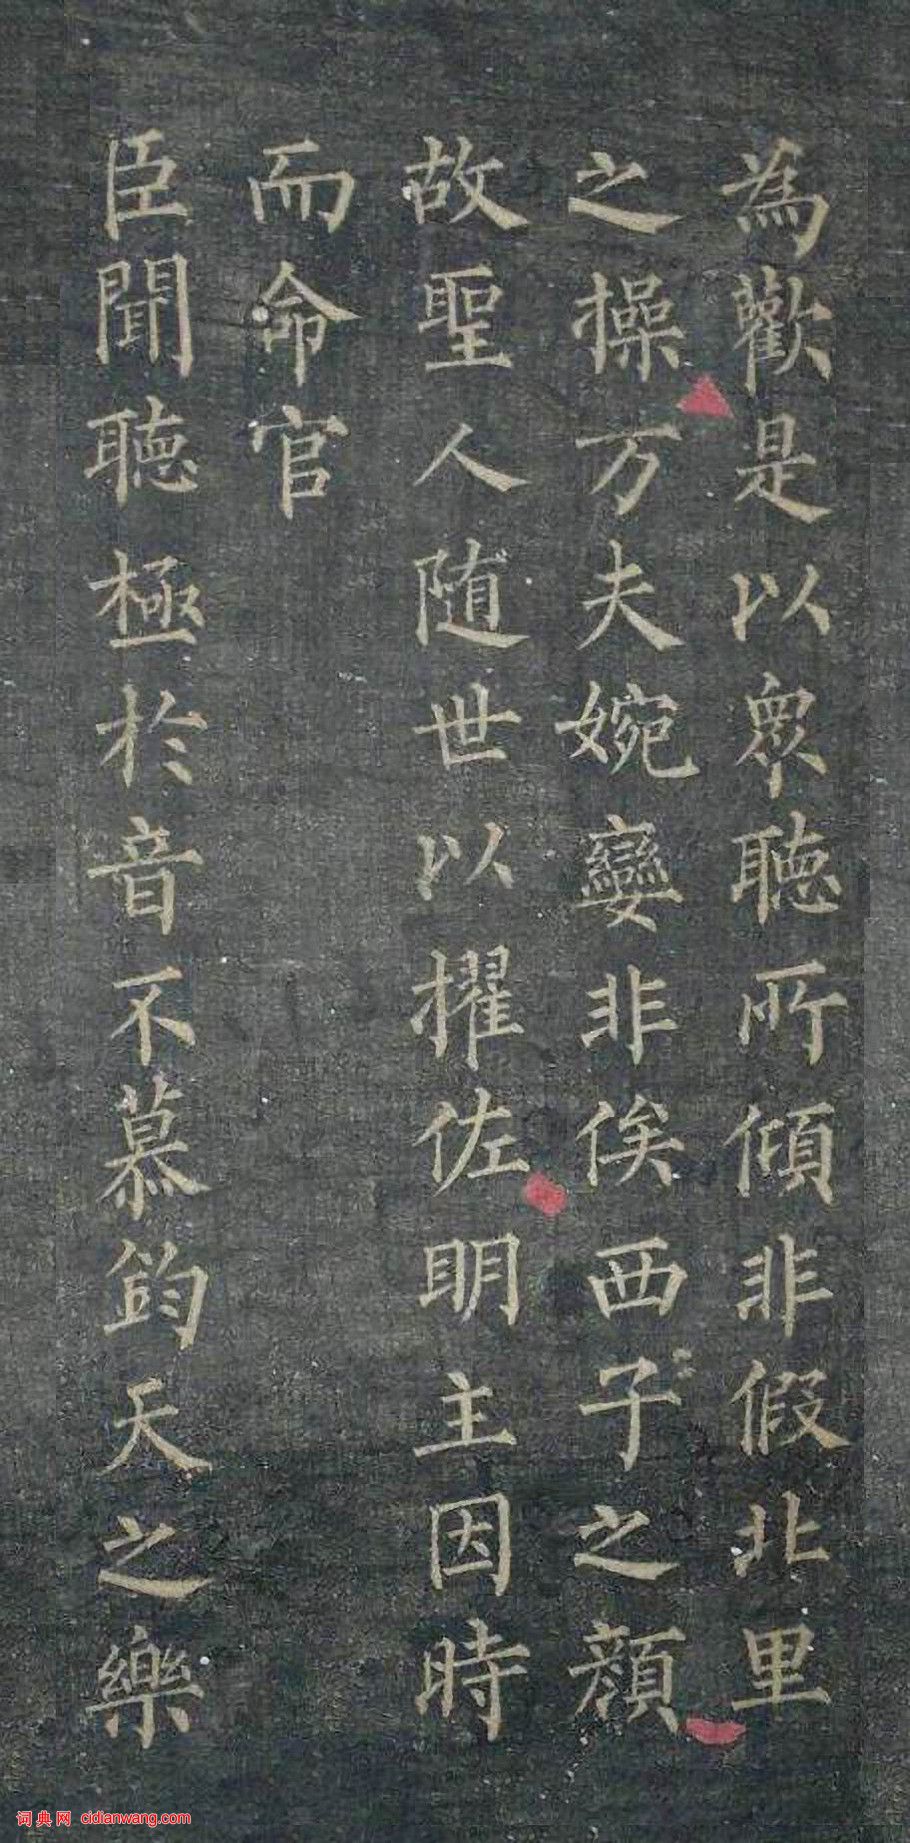 為歡是以衆聽所傾非假北里
之操万夫婉孌非俟西子之顔
故聖人随世以擢佐明主因時
而命官
臣聞聽極於音不慕鈞天之樂
词典网 cidianwang.com